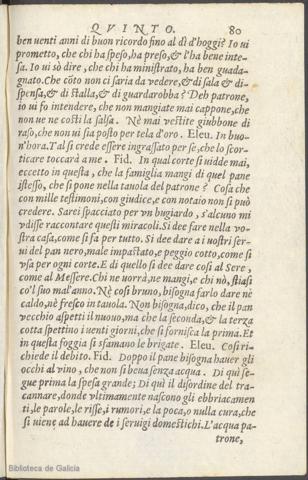 QVINTO. 80
ben uenti anni di buon ricordo fino al dì d'hoggi? Io ui
prometto, che chi ha speso, ha preso, & l'ha bene inte-
sa. Io ui sò dire, che chi ha ministrato, ha ben guada-
gnato. Che cōto non ci saria da vedere, & di sala & di-
spensa, & di stalla, & di guardarobba? Deh patrone,
io ui fo intendere, che non mangiate mai cappone, che
non ue ne costi la salsa. Nè mai vestite giubbone di
raso, che non ui sia posto per tela d'oro. Eleu. In buo-
n'hora. Tal si crede essere ingrassato per se, che lo scor-
ticare toccarà a me. Fid. In qual corte si uidde mai,
eccetto in questa, che la famiglia mangi di quel pane
istesso, che si pone nella tauola del patrone? Cosa che
con mille testimoni, con giudice, e con notaio non si può
credere. Sarei spacciato per vn bugiardo, s'alcuno mi
vdisse raccontare questi miracoli. Si dee fare nella vo-
stra casa, come si fa per tutto. Si dee dare a i uostri ser-
ui del pan nero, male impastato, e peggio cotto, come si
vsa per ogni corte. E di quello si dee dare così al Sere,
come al Messere. Chi ne uorrà, ne mangi, e chi nò, stiasi
co'l suo mal'anno. Nè così bruno, bisogna farlo dare nè
caldo, nè fresco in tauola. Non bisogna, dico, che il pan
vecchio aspetti il nuouo, ma che la seconda, & la terza
cotta spettino i uenti giorni, che si fornisca la prima. Et
in questa foggia si sfamano le brigate. Eleu. Così ri-
chiede il debito. Fid. Doppo il pane bisogna hauer gli
occhi al vino, che non si beua senza acqua. Di quì se-
gue prima la spesa grande; Di quì il disordine del tra-
cannare, donde vltimamente nascono gli ebbriacamen
ti, le parole, le risse, i rumori, e la poca, o nulla cura, che
si uiene ad hauere de i seruigi domestichi. L'acqua pa-
trone,
Biblioteca de Galicia